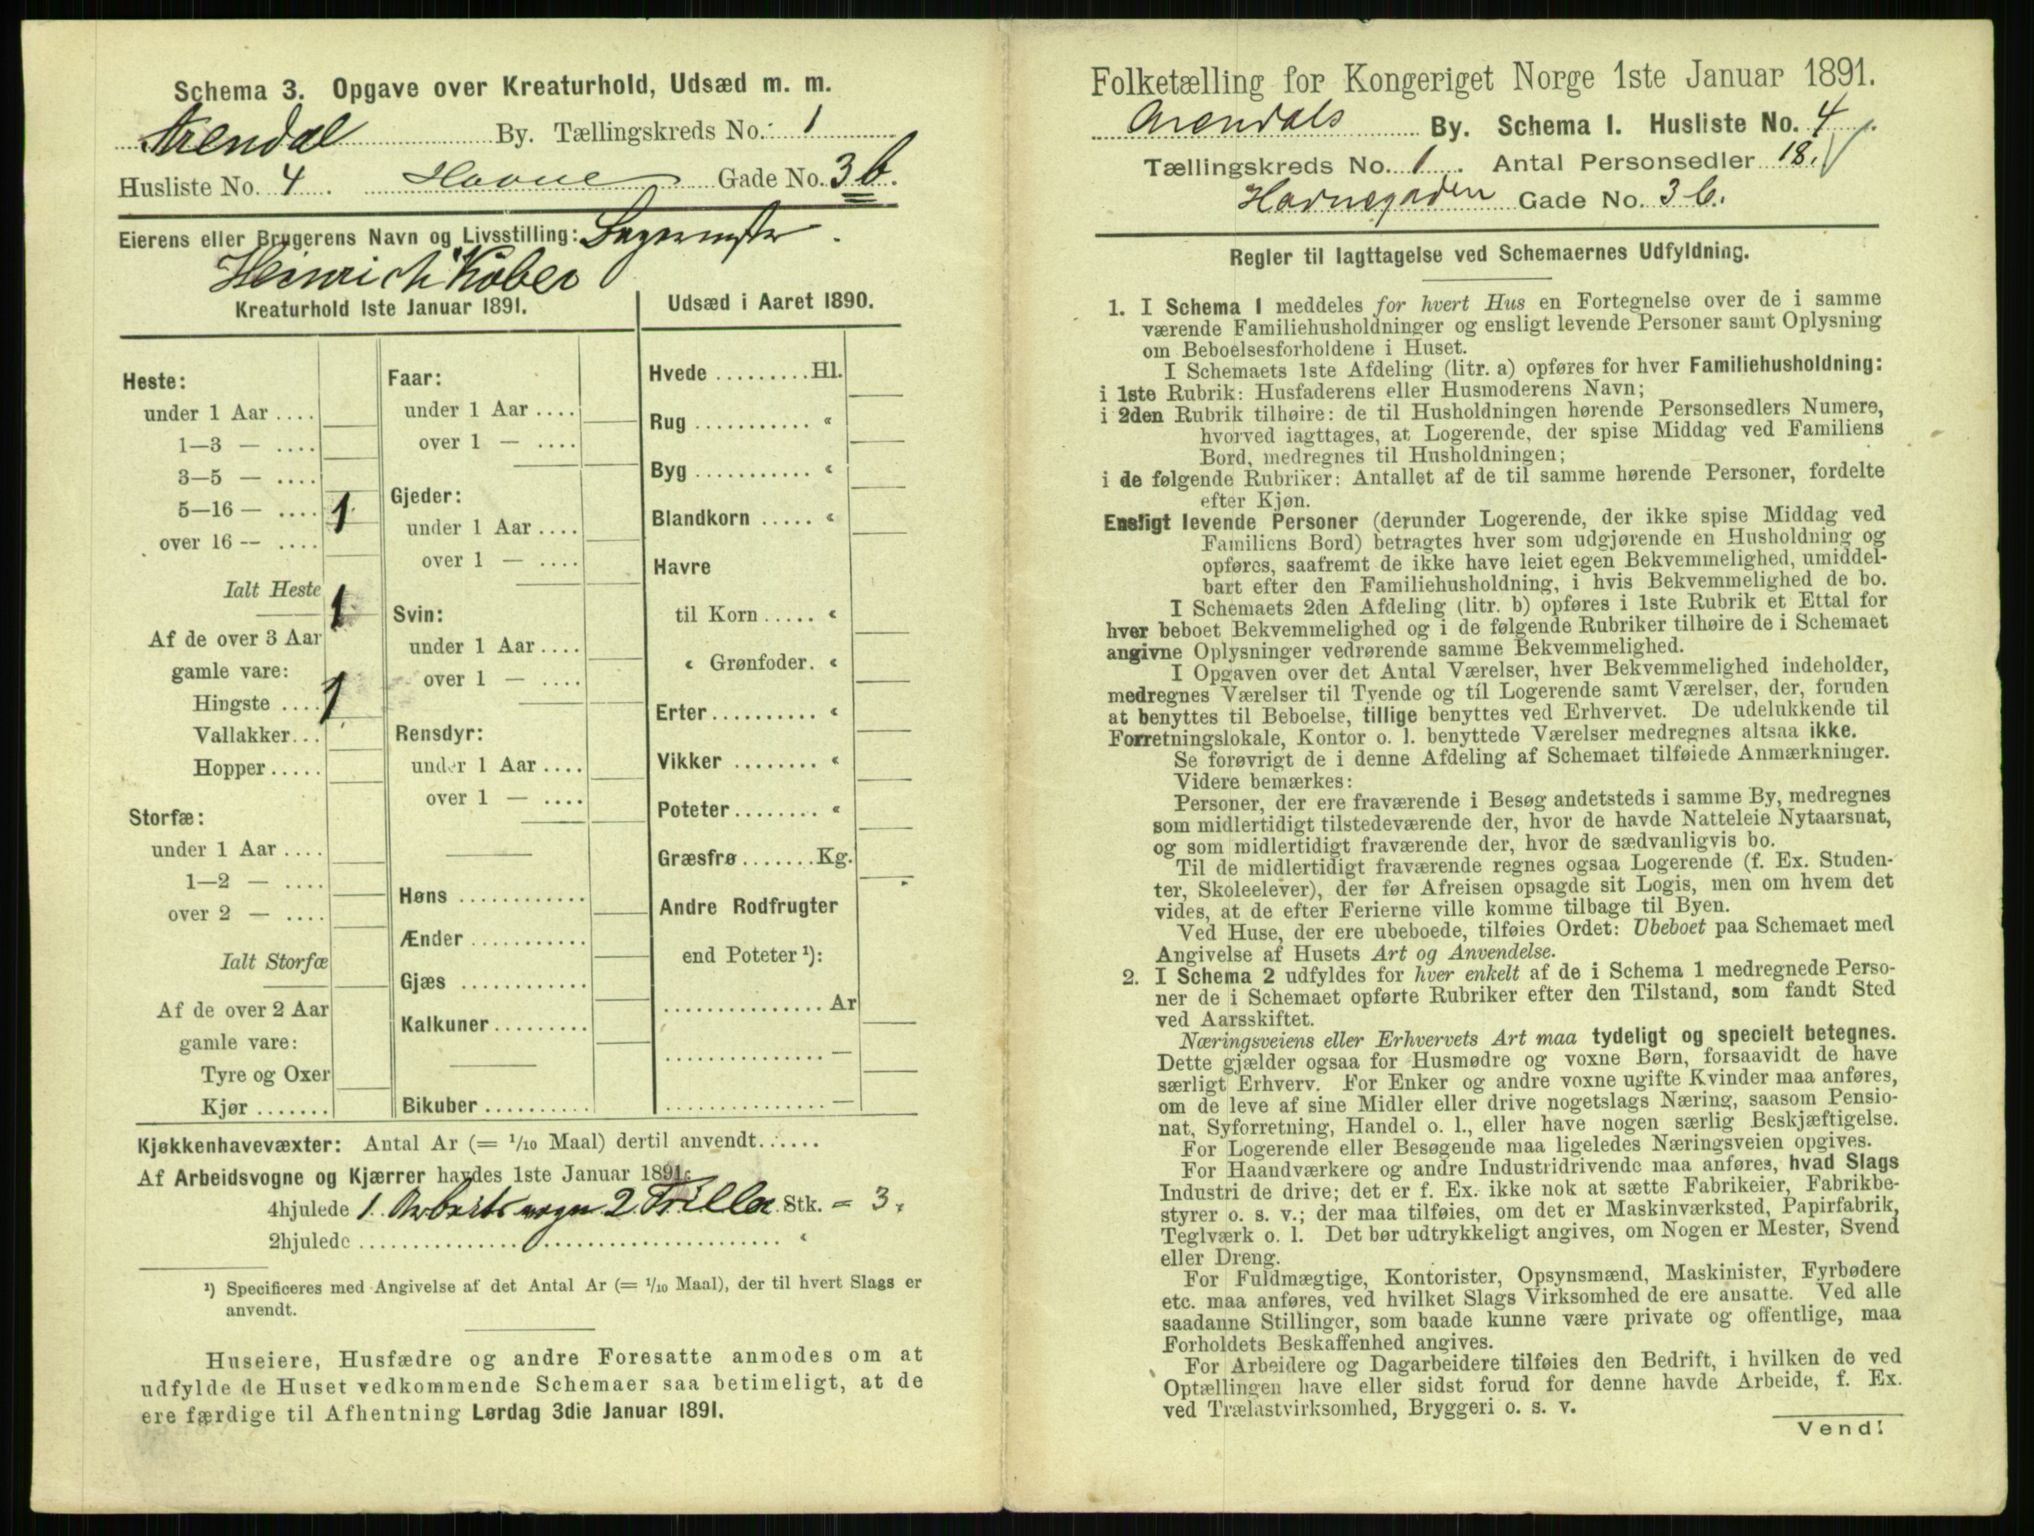 Schema 3. Opgave over Kreaturhold, Udsæd m. m.
Arendal By. Tællingskreds No. 1
Husliste No. 4. Havne Gade No. 3b.
Eierens eller Brugerens Navn og Livsstilling:
Heinrich Kober
Kreaturhold 1ste Januar 1891.
Heste:
under 1 Aar ....
1—3 — ....
3—5 — ....
5—16 — .... 1
over 16 — ....
Ialt Heste 1
Af de over 3 Aar
gamle vare:
Hingste .... 1
Vallakker...
Hopper.....
Storfæ:
under 1 Aar ....
1—2 — ....
over 2 — ....
Ialt Storfæ
Af de over 2 Aar
gamle vare:
Tyre og Oxer
Kjør .......
Faar:
under 1 Aar ....
over 1 — ....
Gjeder:
under 1 Aar ....
over 1 — ....
Svin:
under 1 Aar ....
over 1 — ....
Rensdyr:
under 1 Aar ....
over 1 — ....
Høns ............
Ænder ...........
Gjæs ............
Kalkuner.........
Bikuber ..........
Udsæd i Aaret 1890.
Hvede .........Hl.
Rug ........... «
Byg ........... «
Blandkorn ..... «
Havre
til Korn ..... «
« Grønfoder. «
Erter.......... «
Vikker ........ «
Poteter........ «
Græsfrø.......Kg.
Andre Rodfrugter
end Poteter ¹):
............... Ar
............... —
............... —
Kjøkkenhavevæxter: Antal Ar (= 1/10 Maal) dertil anvendt......
Af Arbeidsvogne og Kjærrer havdes 1ste Januar 1891:
4hjulede 1 Arbeitsvogn 2 Triller Stk. = 3.
2hjulede ........................ «
¹) Specificeres med Angivelse af det Antal Ar (= 1/10 Maal), der til hvert Slags er
anvendt.
Huseiere, Husfædre og andre Foresatte anmodes om at
udfylde de Huset vedkommende Schemaer saa betimeligt, at de
ere færdige til Afhentning Lørdag 3die Januar 1891.
Folketælling for Kongeriget Norge 1ste Januar 1891.
Arendals By. Schema 1. Husliste No. 4.
Tællingskreds No. 1. Antal Personsedler 18.
Havnegaden Gade No. 3b.
Regler til Iagttagelse ved Schemaernes Udfyldning.
1. I Schema 1 meddeles for hvert Hus en Fortegnelse over de i samme
værende Familiehusholdninger og ensligt levende Personer samt Oplysning
om Beboelsesforholdene i Huset.
I Schemaets 1ste Afdeling (litr. a) opføres for hver Familiehusholdning:
i 1ste Rubrik: Husfaderens eller Husmoderens Navn;
i 2den Rubrik tilhøire: de til Husholdningen hørende Personsedlers Numere,
hvorved iagttages, at Logerende, der spise Middag ved Familiens
Bord, medregnes til Husholdningen;
i de følgende Rubriker: Antallet af de til samme hørende Personer, fordelte
efter Kjøn.
Ensligt levende Personer (derunder Logerende, der ikke spise Middag ved
Familiens Bord) betragtes hver som udgjørende en Husholdning og
opføres, saafremt de ikke have leiet egen Bekvemmelighed, umiddel-
bart efter den Familiehusholdning, i hvis Bekvemmelighed de bo.
I Schemaets 2den Afdeling (litr. b) opføres i 1ste Rubrik et Ettal for
hver beboet Bekvemmelighed og i de følgende Rubriker tilhøire de i Schemaet
angivne Oplysninger vedrørende samme Bekvemmelighed.
I Opgaven over det Antal Værelser, hver Bekvemmelighed indeholder,
medregnes Værelser til Tyende og til Logerende samt Værelser, der, foruden
at benyttes til Beboelse, tillige benyttes ved Erhvervet. De udelukkende til
Forretningslokale, Kontor o. l. benyttede Værelser medregnes altsaa ikke.
Se forøvrigt de i denne Afdeling af Schemaet tilføiede Anmærkninger.
Videre bemærkes:
Personer, der ere fraværende i Besøg andetsteds i samme By, medregnes
som midlertidigt tilstedeværende der, hvor de havde Natteleie Nytaarsnat,
og som midlertidigt fraværende der, hvor de sædvanligvis bo.
Til de midlertidigt fraværende regnes ogsaa Logerende (f. Ex. Studen-
ter, Skoleelever), der før Afreisen opsagde sit Logis, men om hvem det
vides, at de efter Ferierne ville komme tilbage til Byen.
Ved Huse, der ere ubeboede, tilføies Ordet: Ubeboet paa Schemaet med
Angivelse af Husets Art og Anvendelse.
2. I Schema 2 udfyldes for hver enkelt af de i Schema 1 medregnede Perso-
ner de i Schemaet opførte Rubriker efter den Tilstand, som fandt Sted
ved Aarsskiftet.
Næringsveiens eller Erhvervets Art maa tydeligt og specielt betegnes.
Dette gjælder ogsaa for Husmødre og voxne Børn, forsaavidt de have
særligt Erhverv. For Enker og andre voxne ugifte Kvinder maa anføres,
om de leve af sine Midler eller drive nogetslags Næring, saasom Pensio-
nat, Syforretning, Handel o. l., eller have nogen særlig Beskjæftigelse.
For Logerende eller Besøgende maa ligeledes Næringsveien opgives.
For Haandværkere og andre Industridrivende maa anføres, hvad Slags
Industri de drive; det er f. Ex. ikke nok at sætte Fabrikeier, Fabrikbe-
styrer o. s. v.; der maa tilføies, om det er Maskinværksted, Papirfabrik,
Teglværk o. l. Det bør udtrykkeligt angives, om Nogen er Mester, Svend
eller Dreng.
For Fuldmægtige, Kontorister, Opsynsmænd, Maskinister, Fyrbødere
etc. maa anføres, ved hvilket Slags Virksomhed de ere ansatte. Ved alle
saadanne Stillinger, som baade kunne være private og offentlige, maa
Forholdets Beskaffenhed angives.
For Arbeidere og Dagarbeidere tilføies den Bedrift, i hvilken de ved
Optællingen have eller sidst forud for denne havde Arbeide, f. Ex.
ved Trælastvirksomhed, Bryggeri o. s. v.
Vend!